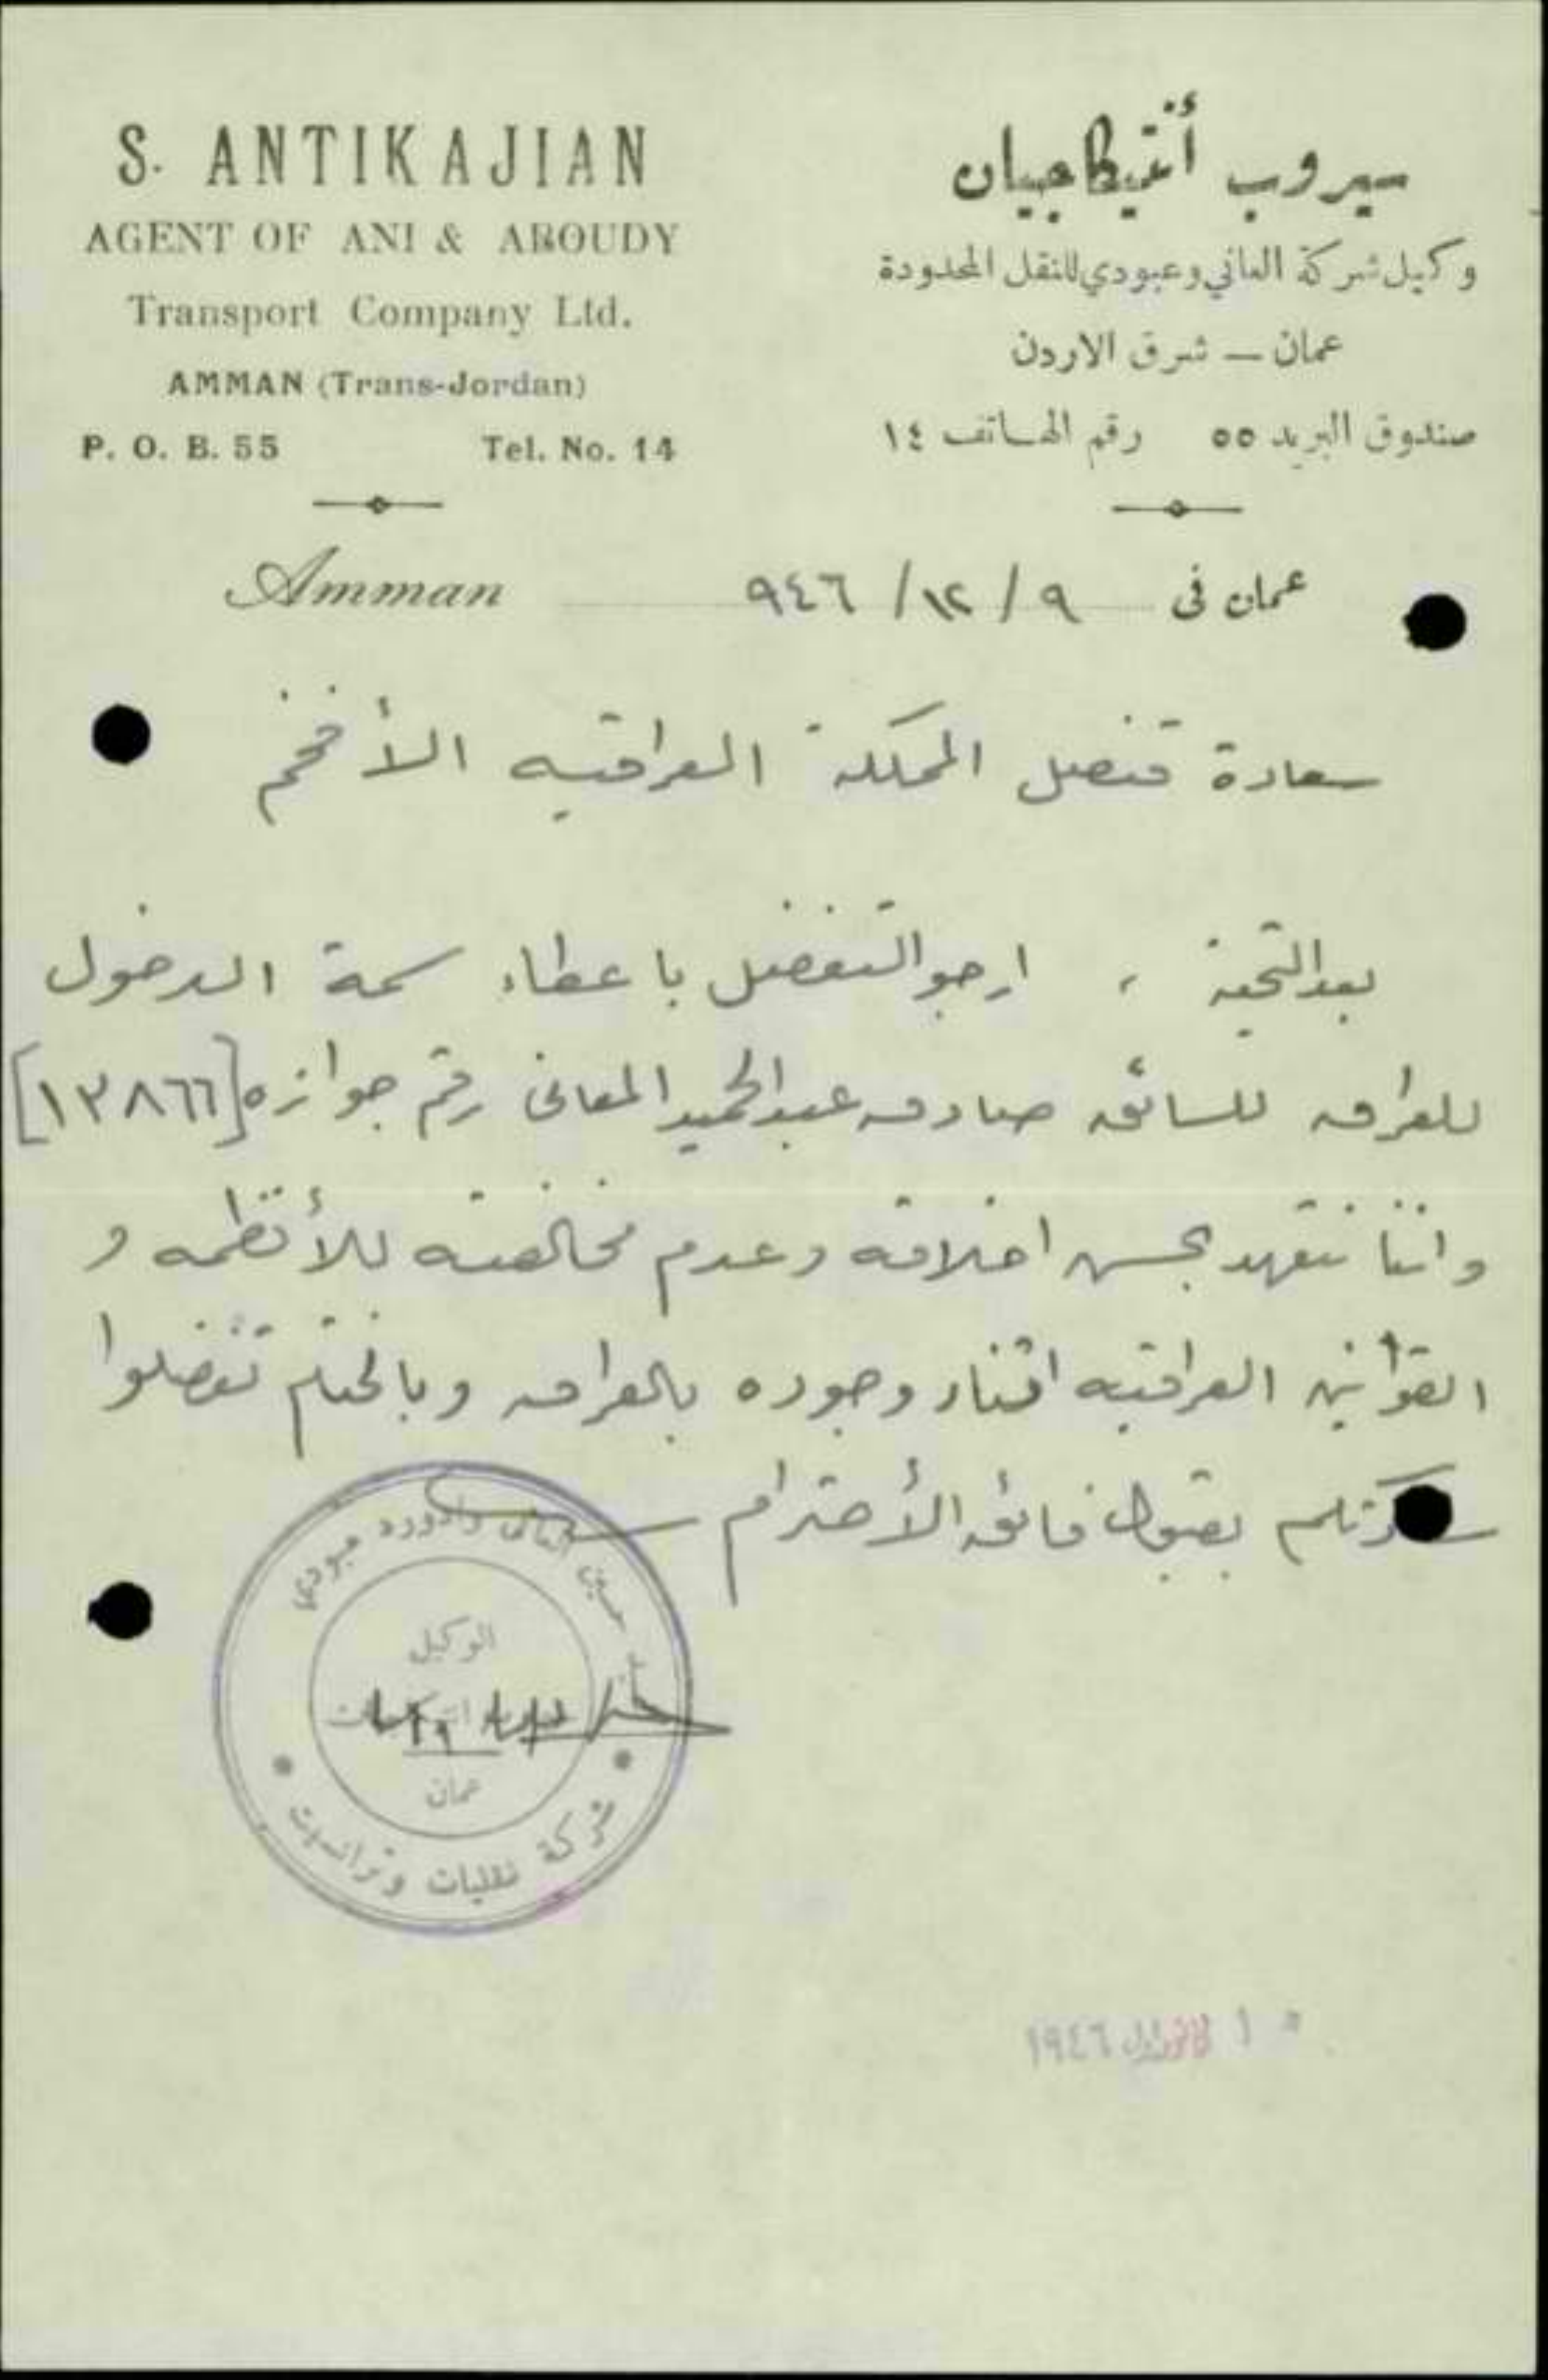 S. ANTIKAJIAN
AGENT OF ANI & ABOUDY
Transport Company Ltd.
AMMAN (Trans-Jordan)
P. O. B. 55 Tel. No. 14
سيروب أنتيكاجيان
وكيل شركة العاني وعبودي للنقل المحدودة
عمان — شرق الاردن
صندوق البريد ٥٥ رقم الهاتف ١٤
Amman عمان في ٩ / ١٢ / ٩٤٦
سعادة قنصل المملكة العراقيه الأفخم
بعد التحية ، ارجو التفضل باعطاء سمة الدخول
للعراق للسائق صادق عبد الحميد المعاني رقم جوازه [١٣٨٦٦]
واننا نتعهد بحسن اخلاقه وعدم مخالفته للأنظمه و
القوانين العراقيه اثناء وجوده بالعراق وبالختام تفضلوا
بقبول فائق الأحترام
حسين العاني وادورد عبودي
الوكيل
عمان
شركة نقليات وترانسيت
١٩٤٦